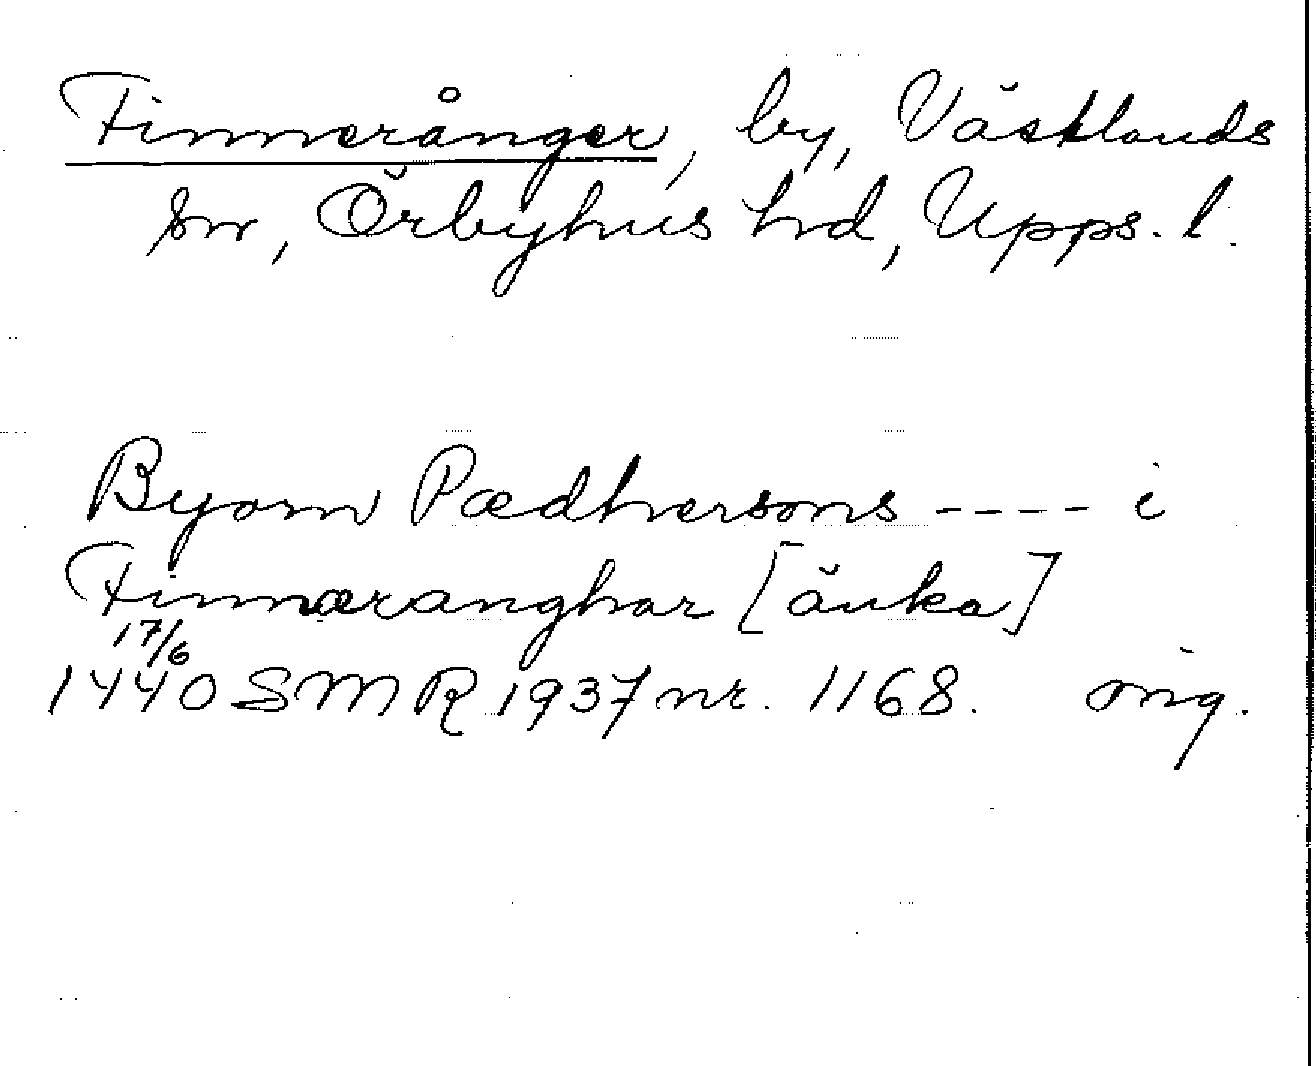 Finneränger, by, Västlands
sn, Örbyhus hd, Upps. l.
Byorn Pædhersons ---- i
Finnæranghar [änka]
17/6
1440 SMR 1937 nr. 1168. orig.